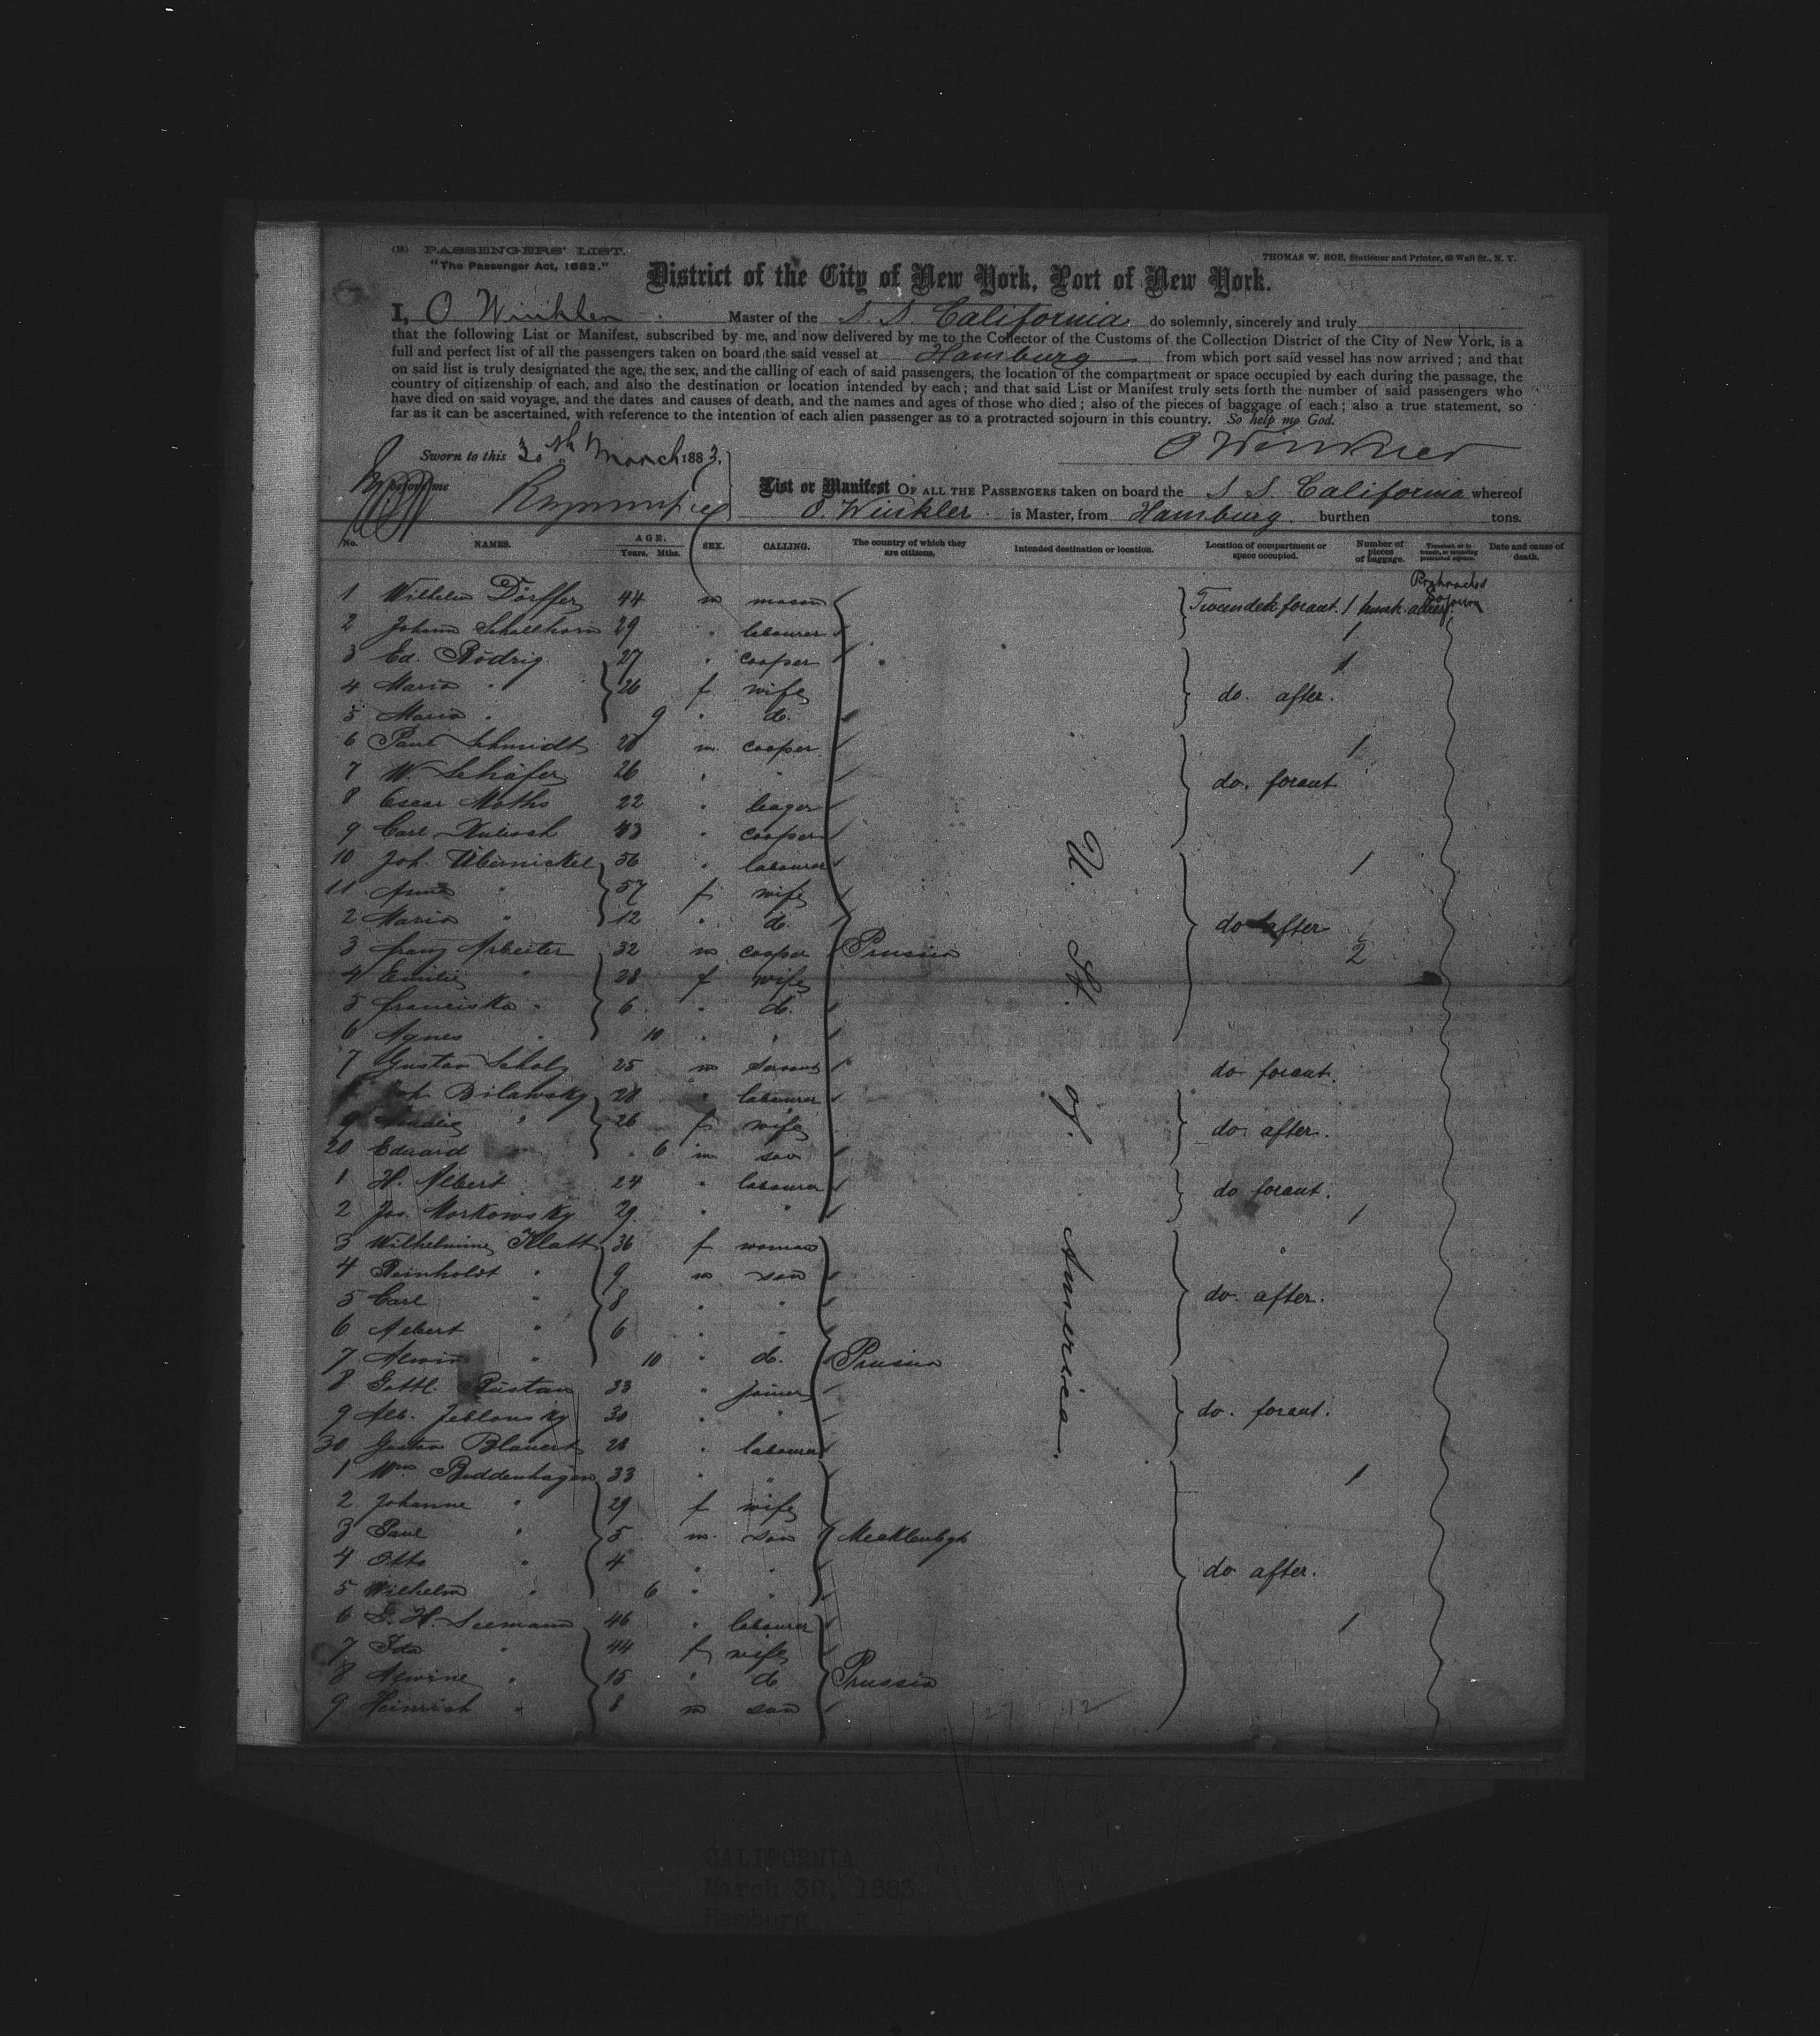 (18) PASSENGERS' LIST.
"The Passenger Act, 1882."
THOMAS W. ROE, Stationer and Printer, 63 Wall St., N. Y.
District of the City of New York, Port of New York.
I, O Winkler Master of the S. S. California do solemnly, sincerely and truly
that the following List or Manifest, subscribed by me, and now delivered by me to the Collector of the Customs of the Collection District of the City of New York, is a
full and perfect list of all the passengers taken on board the said vessel at Hamburg from which port said vessel has now arrived; and that
on said list is truly designated the age, the sex, and the calling of each of said passengers, the location of the compartment or space occupied by each during the passage, the
country of citizenship of each, and also the destination or location intended by each; and that said List or Manifest truly sets forth the number of said passengers who
have died on said voyage, and the dates and causes of death, and the names and ages of those who died; also of the pieces of baggage of each; also a true statement, so
far as it can be ascertained, with reference to the intention of each alien passenger as to a protracted sojourn in this country. So help me God.
Sworn to this 30th March 1883,
O Winkler
before me
List or Manifest OF ALL THE PASSENGERS taken on board the S S. California whereof
O. Winkler is Master, from Hamburg burthen tons.
No. NAMES. AGE. Years. Mths. SEX. CALLING. The country of which they are citizens. Intended destination or location. Location of compartment or space occupied. Number of pieces of baggage. Transient, or in transit, or intending protracted sojourn. Date and cause of death.
1 Wilhelm Dörffer 44 m mason Tweendek foraut. 1 Protracted Sojourn
2 Johann Schallhorn 29 " labourer 1
3 Ed. Rödrig 27 " cooper 1
4 Maria " 26 f wife do. after.
5 Maria " 9 " d.
6 Paul Schmidt 28 m. cooper 1
7 W. Schäfer 26 " " do. foraut
8 Oscar Moths 22 "
9 Carl 43 " cooper
10 Joh. Übernickel 56 " labourer 1
11 Anna " 57 f wife
2 Maria " 12 " d. do after
3 Franz Arbeiter 32 m cooper Prussia 2
4 Emilie " 28 f wife
5 Franciska " 6 " d.
6 Agnes " 10 " "
7 Gustav Scholz 25 m servant do foraut.
Joh. Bilawsky 28 " labourer
9 " 26 f wife do after.
20 Eduard 6 m. son
1 H. Albert 24 " labourer do foraut.
2 Jos. Morkowsky 29 " " 1
3 Wilhelmine Klatt 36 f woman
4 Reinholdt " 9 m son
5 Carl " 8 " " do. after.
6 Albert " 6 " "
7 Alwin " 10 " d. Prussia
8 Gottl. Rüstau 33 " joiner
9 Alb. Jeblonsky 30 " " do. foraut.
30 Gustav Blauert 28 " labourer
1 Wm. Buddenhagen 33 " " 1
2 Johanne " 29 f wife
3 Paul " 5 m. son Mecklenbgh
4 Otto " 4 " " do after.
5 Wilhelm " 6 " "
6 G. H. Seemann 46 " labourer 1
7 Ida " 44 f wife
8 Alwine " 15 " d Prussia
9 Heinrich " 8 m son
U. St. of America.
CALIFORNIA
March 30, 1883
Hamburg